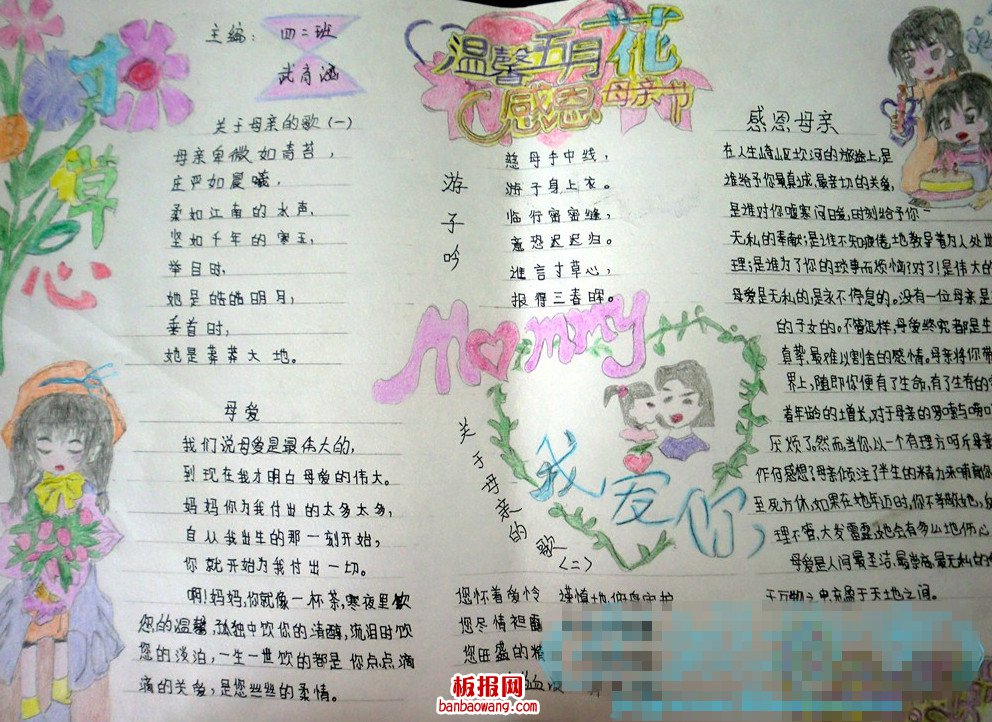 主编：四二班
武
寸草心
温馨五月花
感恩母亲节
关于母亲的歌（一）
母亲卑微如青苔，
庄严如晨曦，
柔如江南的水声，
坚如千年的寒玉，
举目时，
她是皓皓明月，
垂首时，
她是莽莽大地。
母爱
我们说母爱是最伟大的，
到现在我才明白母爱的伟大。
妈妈你为我付出的太多太多，
自从我出生的那一刻开始，
你就开始为我付出一切。
啊！妈妈，你就像一杯茶，寒夜里饮
您的温馨，孤独中饮你的清醇，流泪时饮
您的淡泊，一生一世饮的都是你点点滴
滴的关爱，是您丝丝的柔情。
游子吟
慈母手中线，
游子身上衣。
临行密密缝，
意恐迟迟归。
谁言寸草心，
报得三春晖。
Mommy
我爱你，
关于母亲的歌（二）
您怀着爱怜
您尽情袒露
您旺盛的精
感恩母亲
在人生崎山区坎河的旅途上，是
谁给予你最真诚、最亲切的关爱，
是谁对你嘘寒问暖，时刻给予你
无私的奉献；是谁不知疲倦地教导着为人处
理；是谁为了你的琐事而烦恼？对了！是伟大的
母爱是无私的，是永不停息的。没有一位母亲是
的子女的。不管怎样，母爱终究都是
真挚、最难以割舍的感情。母亲将你带
界上，随即你便有了生命，有了生存的
着年龄的土曾长，对于母亲的罗嗦与唠叨
厌烦了。然而当你以一个有理方呵斥母亲
作何感想？母亲倾注了半生的精力来哺育你
至死方休，如果在她年迈时，你不孝敬她，
理不睬、大发雷霆，她会有多么地伤心
母爱是人间最圣洁、最崇高、最无私的
于万物之中，充盈于天地之间。
板报网
banbaowang.com